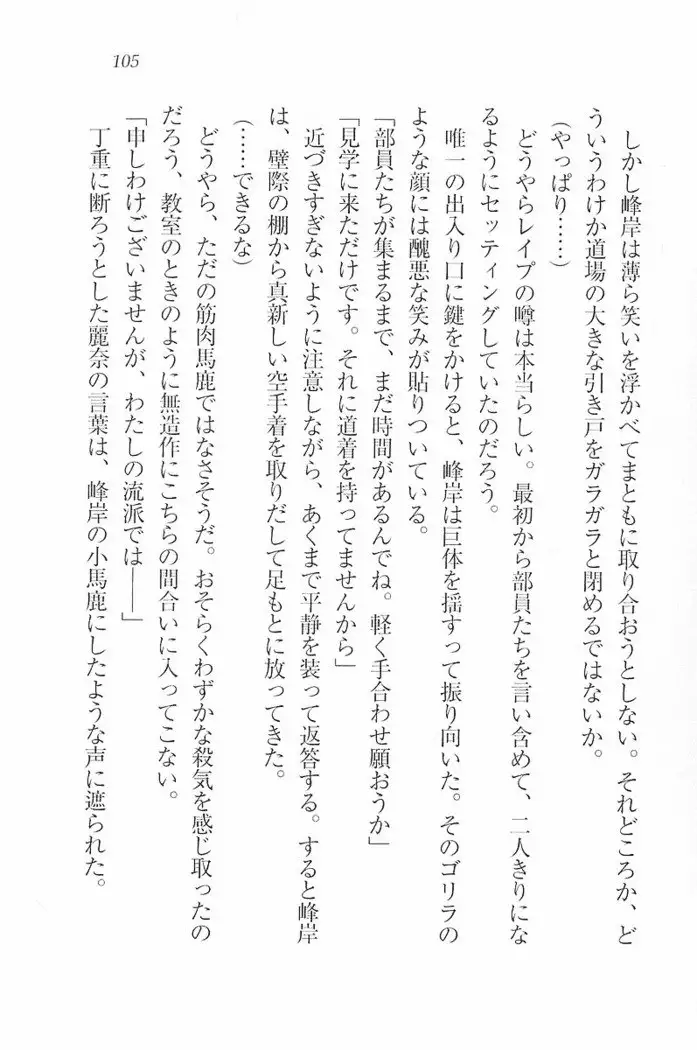 105
しかし峰岸は薄ら笑いを浮かべてまともに取り合おうとしない。それどころか、ど
ういうわけか道場の大きな引き戸をガラガラと閉めるではないか。
(やっぱり……)
どうやらレイプの噂は本当らしい。最初から部員たちを言い含めて、二人きりにな
るようにセッティングしていたのだろう。
唯一の出入り口に鍵をかけると、峰岸は巨体を揺すって振り向いた。そのゴリラの
ような顔には醜悪な笑みが貼りついている。
「部員たちが集まるまで、まだ時間があるんでね。軽く手合わせ願おうか」
「見学に来ただけです。それに道着を持ってませんから」
近づきすぎないように注意しながら、あくまで平静を装って返答する。すると峰岸
は、壁際の棚から真新しい空手着を取りだして足もとに放ってきた。
(……できるな)
どうやら、ただの筋肉馬鹿ではなさそうだ。おそらくわずかな殺気を感じ取ったの
だろう、教室のときのように無造作にこちらの間合いに入ってこない。
「申しわけございませんが、わたしの流派では――」
丁重に断ろうとした麗奈の言葉は、峰岸の小馬鹿にしたような声に遮られた。